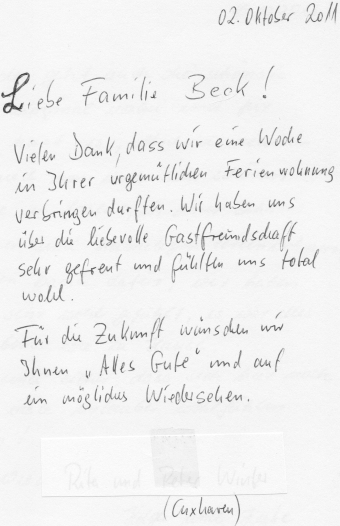 02. Oktober 2011
Liebe Familie Beck!
Vielen Dank, dass wir eine Woche
in Ihrer urgemütlichen Ferienwohnung
verbringen durften. Wir haben uns
über die liebevolle Gastfreundschaft
sehr gefreut und fühlten uns total
wohl.
Für die Zukunft wünschen wir
Ihnen „Alles Gute“ und auf
ein mögliches Wiedersehen.
und
(Cuxhaven)